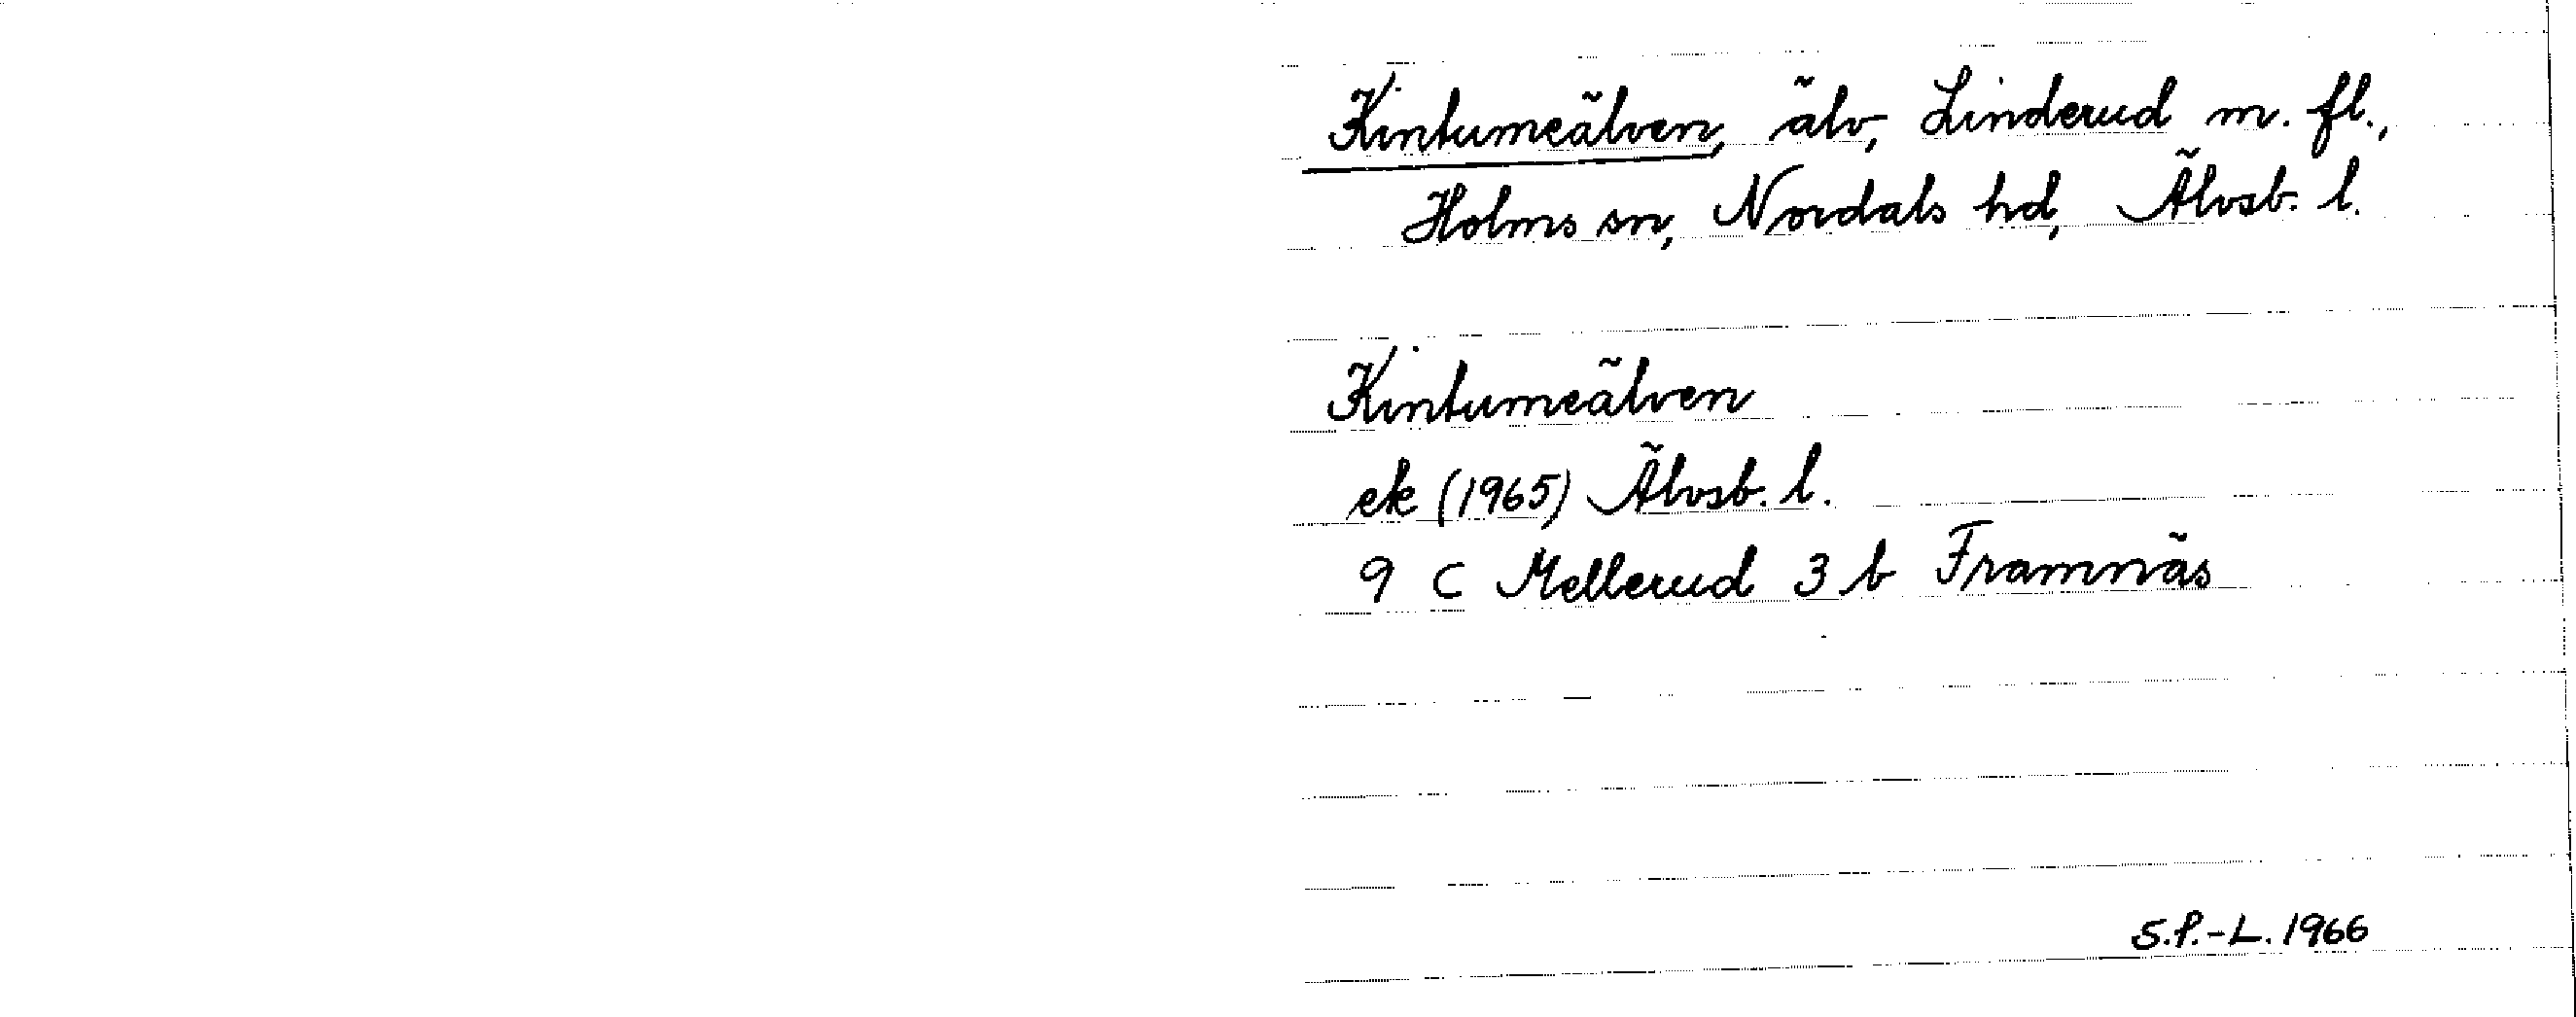 Kintumeälven, älv, Linderud m. fl.,
Holms sn, Nordals hd, Älvsb. l.
Kintumeälven
ek (1965) Älvsb. l.
9 C Mellerud 3 b Framnäs
S.P.-L. 1966